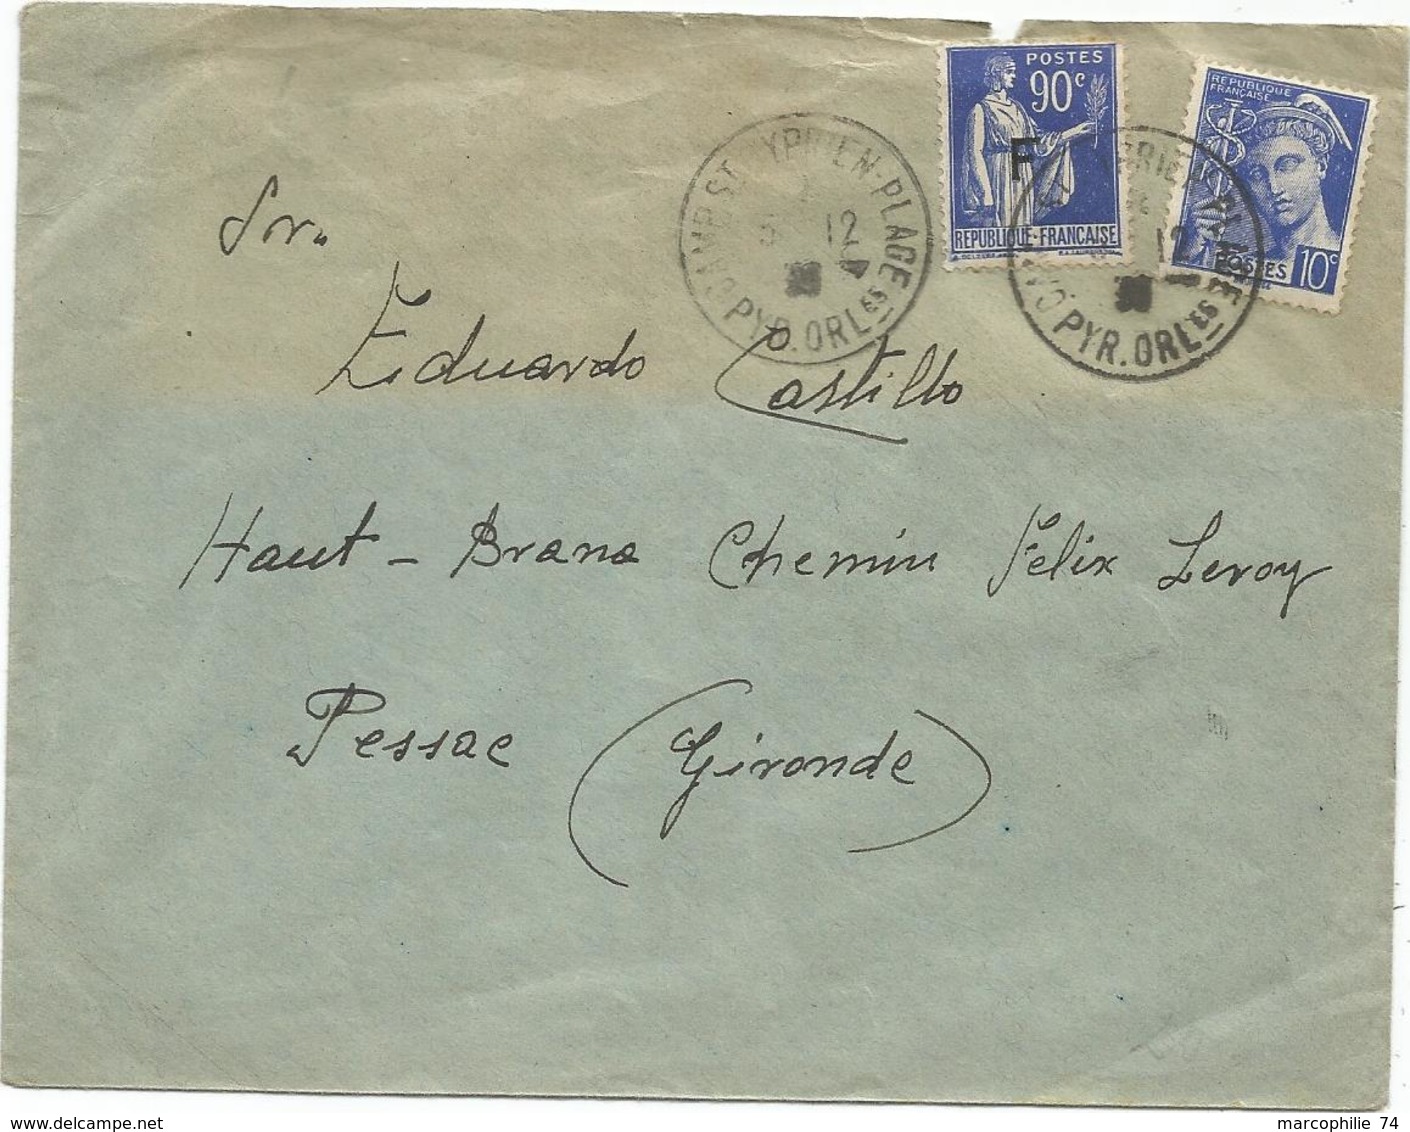 POSTES
90c
F
REPUBLIQUE-FRANÇAISE
REPUBLIQUE
FRANÇAISE
POSTES 10c
CAMP ST CYPRIEN-PLAGE
5 12
PYR. ORLES
12
PYR. ORLES
Sr.
Eduardo Castillo
Haut-Brana Chemin Félix Leroy
Pessac (Gironde)
www.delcampe.net
marcophilie 74